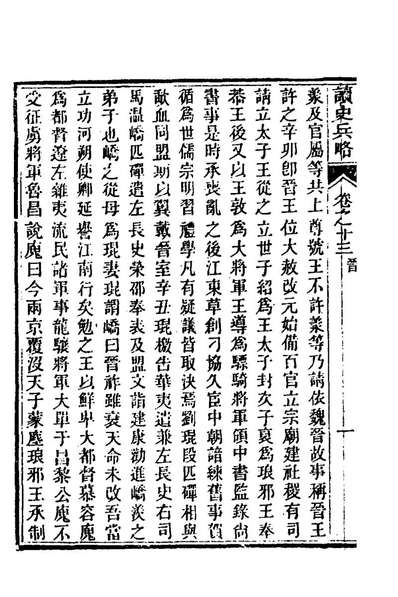 讀史兵略 卷之十三 晉 一
羕及官屬等共上尊號王不許羕等乃請依魏晉故事稱晉王
許之辛卯卽晉王位大赦改元始備百官立宗廟建社稷有司
請立太子王從之立世子紹爲王太子封次子裒爲琅邪王奉
恭王後又以王敦爲大將軍王導爲驃騎將軍領中書監錄尚
書事是時承喪亂之後江東草創刁協久宦中朝諳練舊事賀
循爲世儒宗明習禮學凡有疑議皆取決焉劉琨段匹磾相與
歃血同盟期以翼戴晉室辛丑琨檄告華夷遣兼左長史右司
馬溫嶠匹磾遣左長史榮邵奉表及盟文詣建康勸進嶠羨之
弟子也嶠之從母爲琨妻琨謂嶠曰晉祚雖衰天命未改吾當
立功河朔使卿延譽江南行矣勉之王以鮮卑大都督慕容廆
爲都督遼左雜夷流民諸軍事龍驤將軍大單于昌黎公廆不
受征虜將軍魯昌說廆曰今兩京覆沒天子蒙塵琅邪王承制